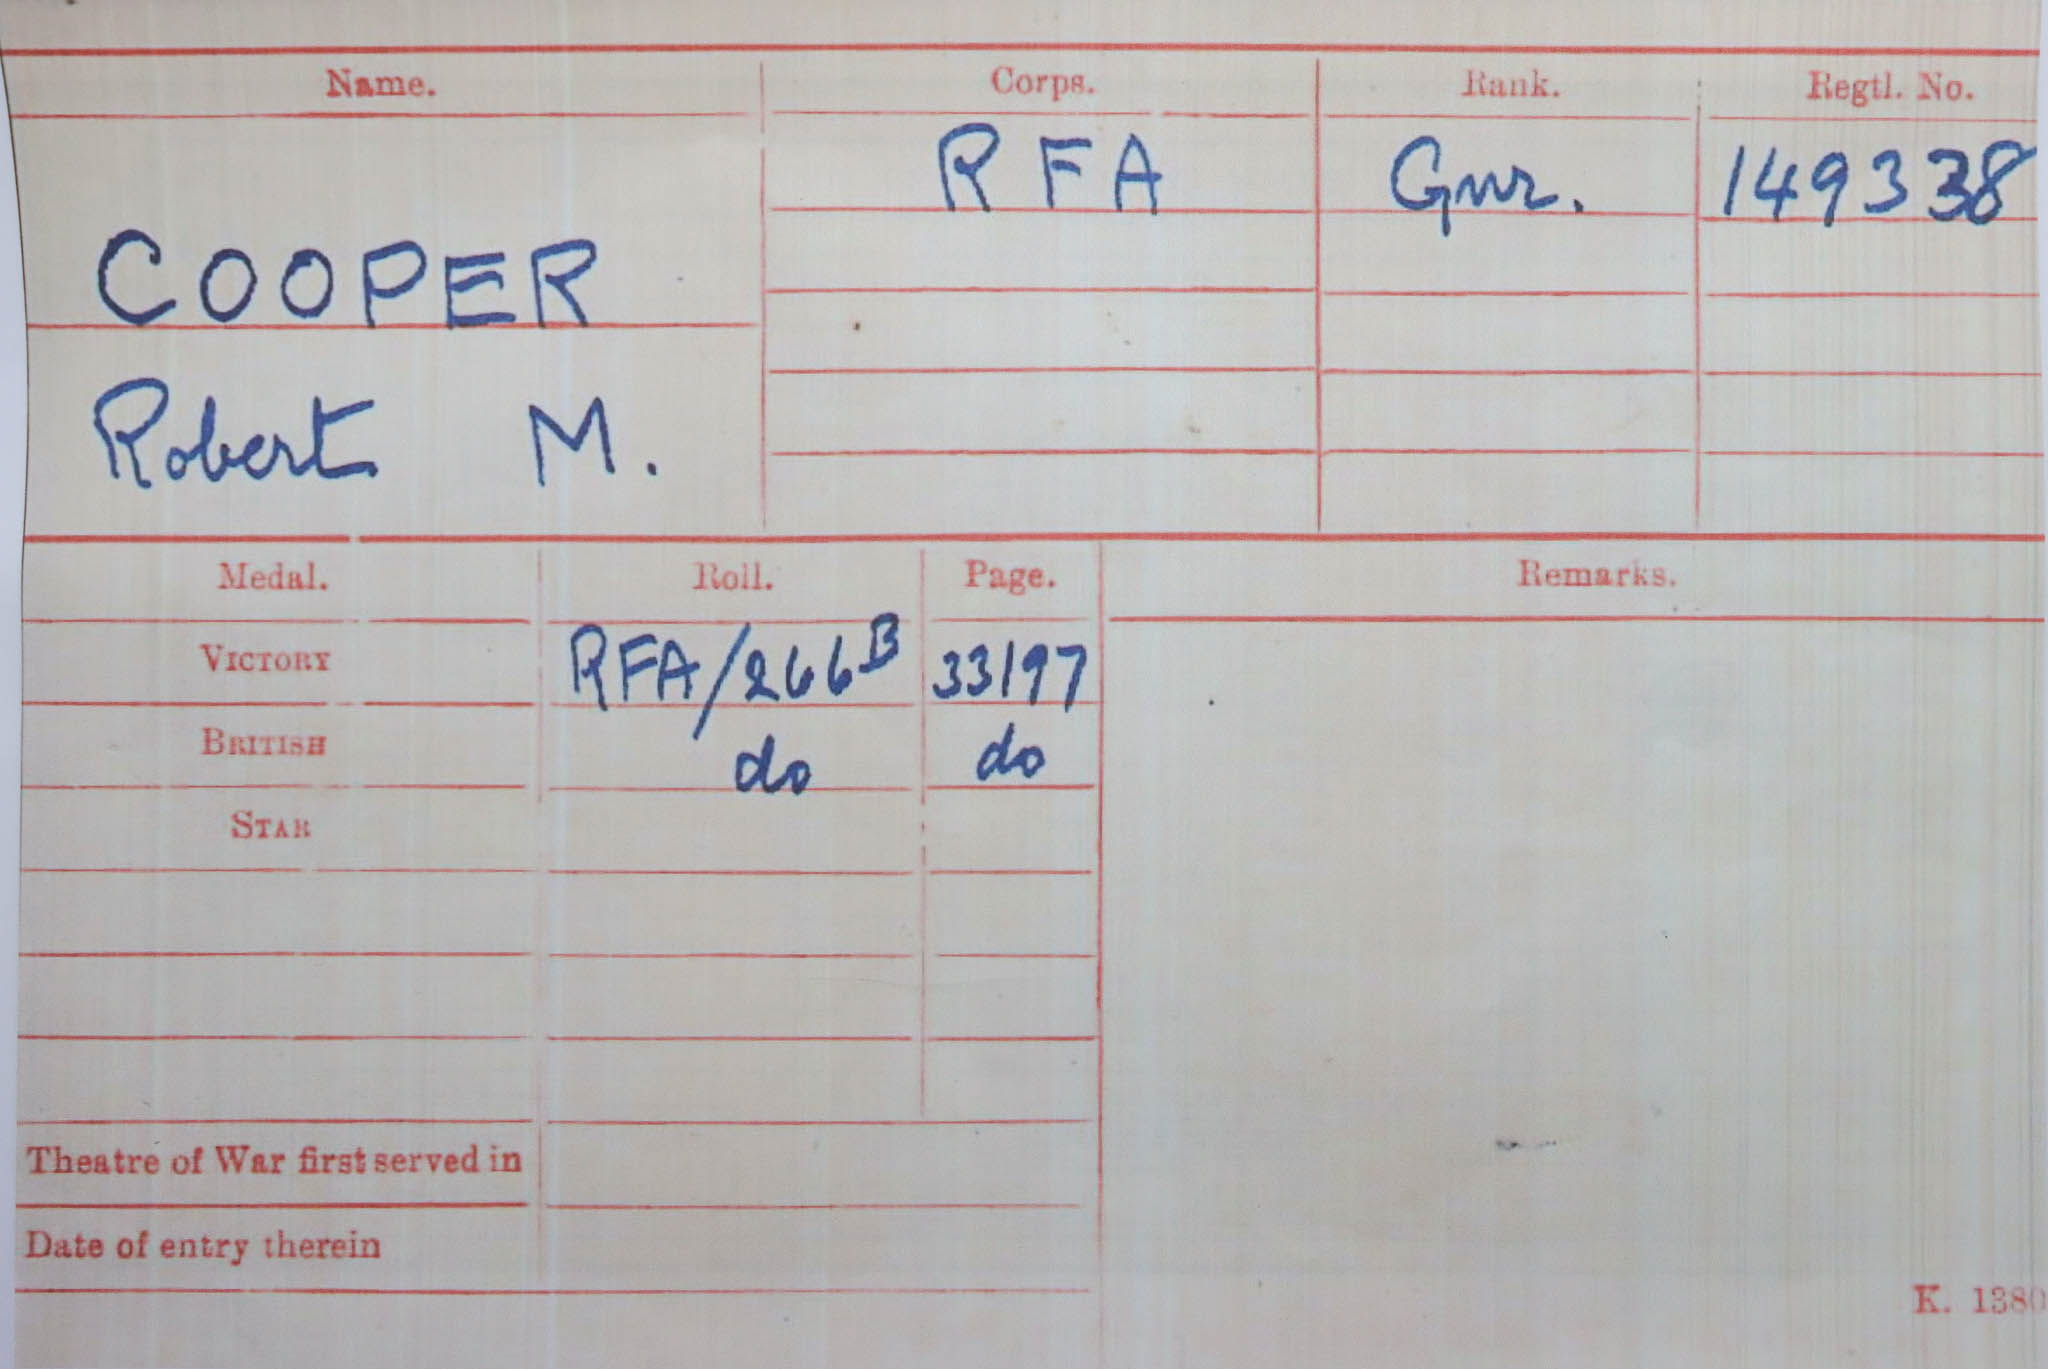 Name. Corps. Rank. Regtl. No.
RFA Gnr. 149338
COOPER
Robert M.
Medal. Roll. Page. Remarks.
VICTORY RFA/266B 33197
BRITISH do do
STAR
Theatre of War first served in
Date of entry therein
K. 1380